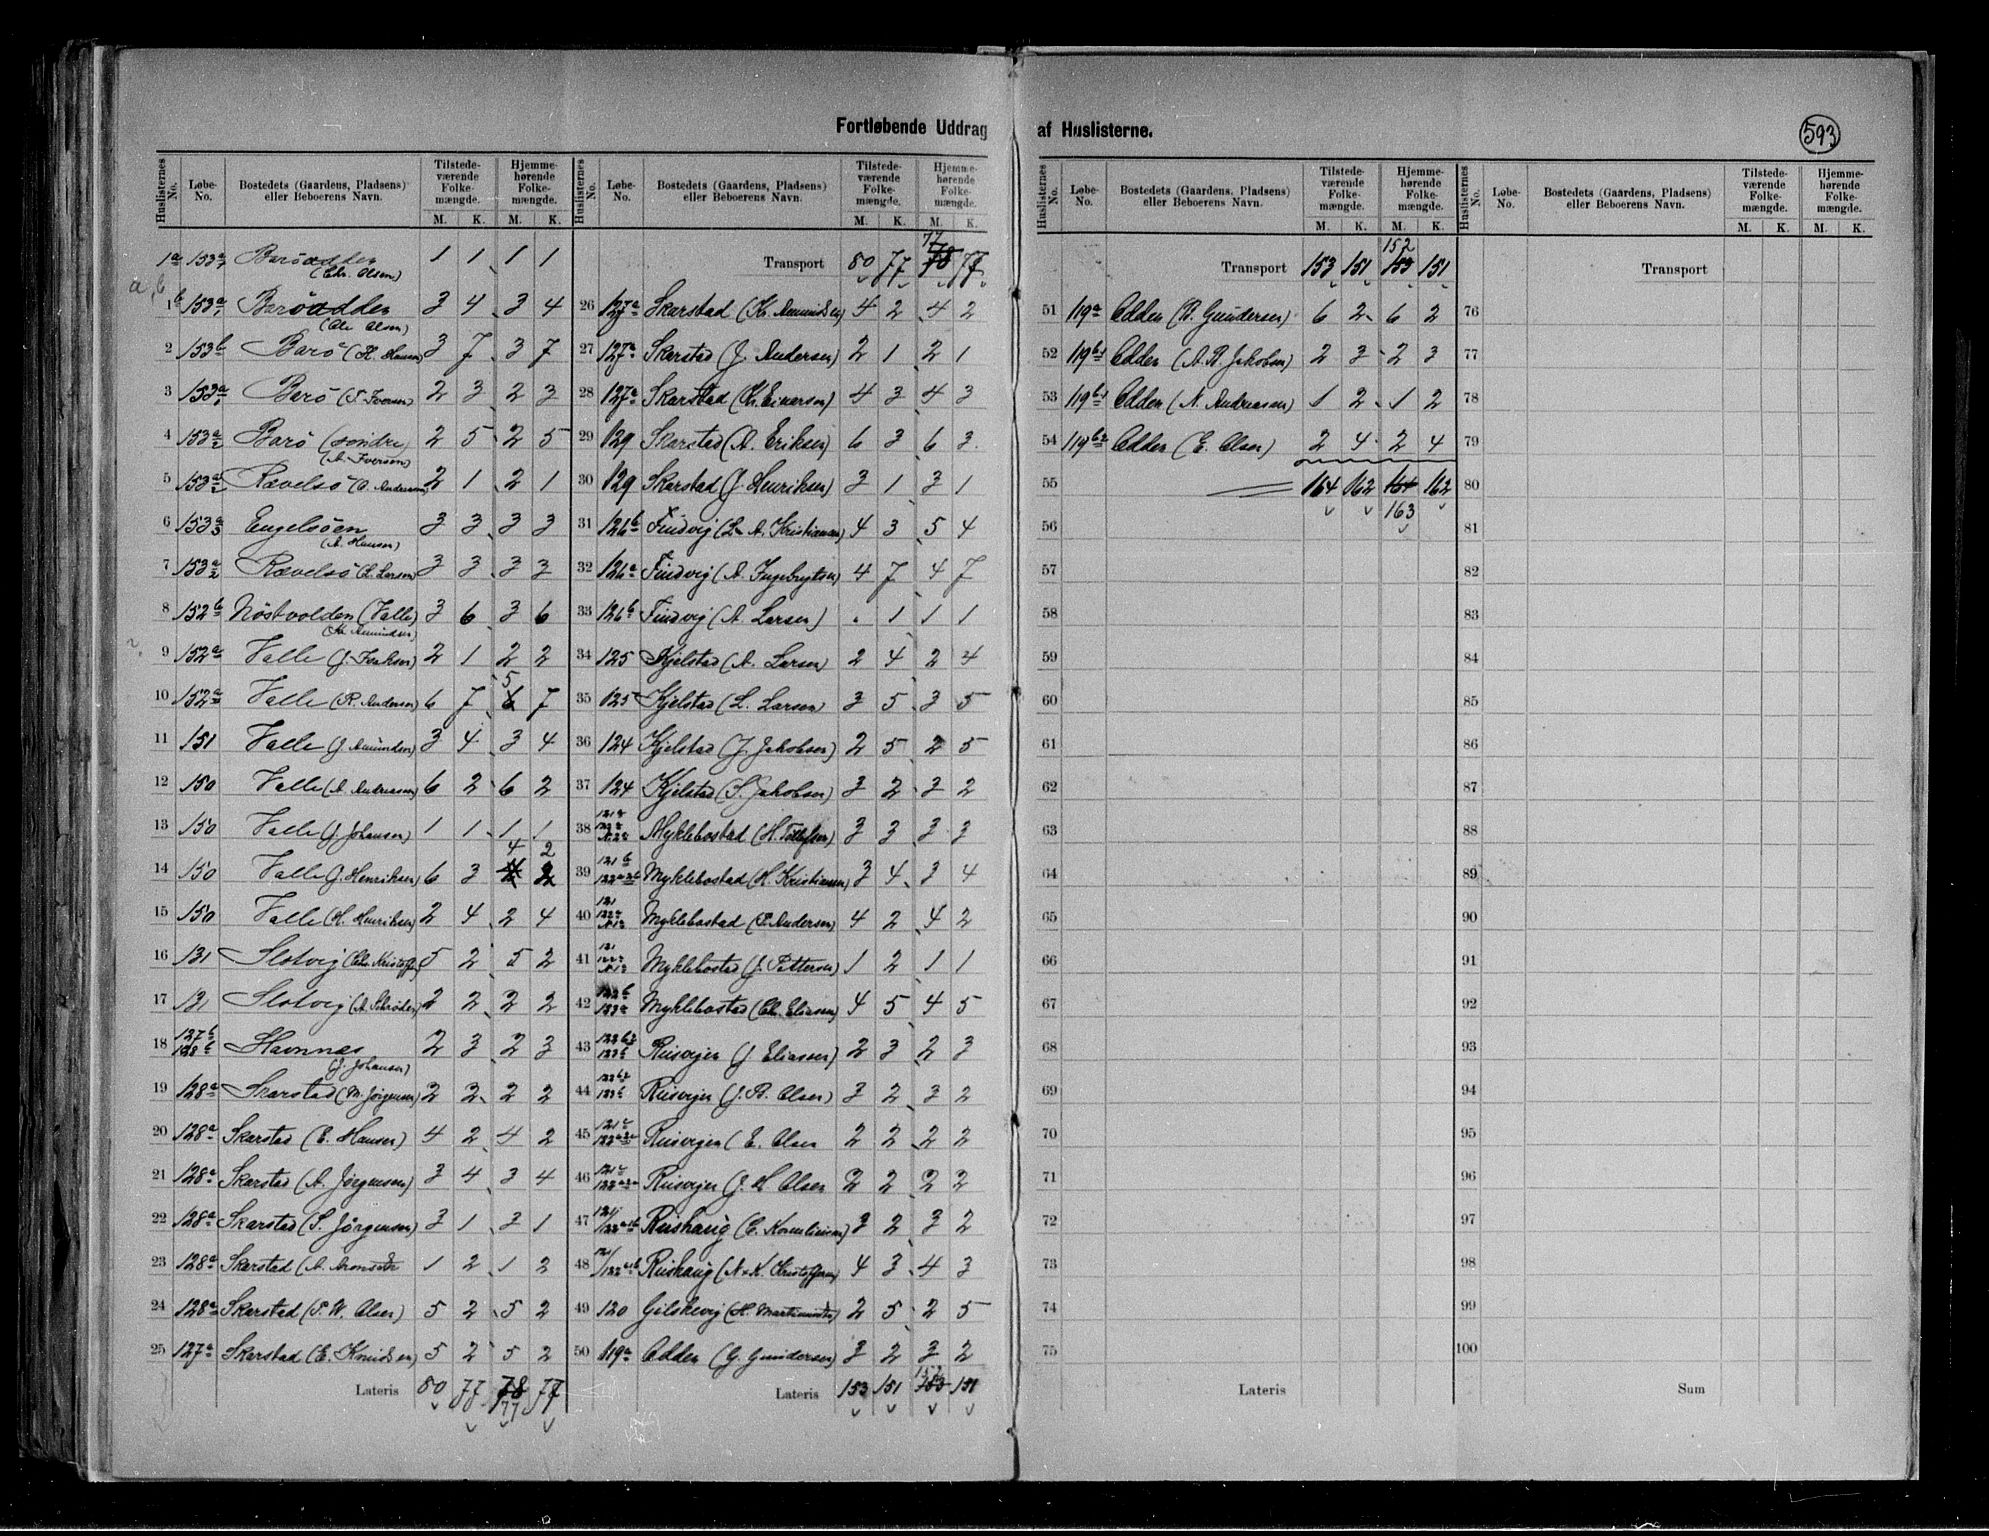 Fortløbende Uddrag af Huslisterne.
593
Huslisternes No. Løbe-No. Bostedets (Gaardens, Pladsens) eller Beboerens Navn. Tilstedeværende Folkemængde. M. K. Hjemmehørende Folkemængde. M. K.
1a 153a Barö (Chr. Olsen) 1 1 1 1
a, b
1b 153a Barö (Ole Olsen) 3 4 3 4
2 153b Barö (H. Hansen) 3 7 3 7
3 153a Barö (S. Iversen) 2 3 2 3
4 153a2 Barö (söndre) (A. Iversen) 2 5 2 5
5 153a2 Rævelsö (O. Andersen) 2 1 2 1
6 153a3 Engelsöen (A. Hansen) 3 3 3 3
7 153a2 Rævelsö (L. Larsen) 3 3 3 3
8 152b Nöstvolden (Valle) (Kr. Amundsen) 3 6 3 6
9 152a Valle (J. Isaksen) 2 1 2 2
10 152a Valle (R. Andersen) 6 7 6 5 7
11 151 Valle (J. Amundsen) 3 4 3 4
12 150 Valle (A. Andreasen) 6 2 6 2
13 150 Valle (J. Johansen) 1 1 1 1
14 150 Valle (J. Henriksen) 6 3 4 2
15 150 Valle (H. Henriksen) 2 4 2 4
16 131 Slotvig (Chr. Kristoff) 5 2 5 2
17 131 Slotvig (A. Schrøder) 2 2 2 2
18 127b 128b Havnnes (J. Johansen) 2 3 2 3
19 128a Skarstad (M. Jörgensen) 2 2 2 2
20 128a Skarstad (E. Hansen) 4 2 4 2
21 128a Skarstad (A. Jörgensen) 3 4 3 4
22 128a Skarstad (S. Jörgensen) 3 1 3 1
23 128a Skarstad (A. 1 2 1 2
24 128a Skarstad (P. W. Olsen) 5 2 5 2
25 127a Skarstad (E. Knudsen) 5 2 5 2
Lateris 80 77 78 77 77
Huslisternes No. Løbe-No. Bostedets (Gaardens, Pladsens) eller Beboerens Navn. Tilstedeværende Folkemængde. M. K. Hjemmehørende Folkemængde. M. K.
Transport 80 77 77 78 77
26 127a Skarstad (K. Amundsen) 4 2 4 2
27 127a Skarstad (J. Andersen) 2 1 2 1
28 127a Skarstad (Kr. Einersen) 4 3 4 3
29 129 Skarstad (A. Eriksen) 6 3 6 3
30 129 Skarstad (J. Henriksen) 3 1 3 1
31 126b Findvig (L. A. Kristiansen) 4 3 5 4
32 126a Findvig (A. Ingebrigtsen) 4 7 4 7
33 126b Findvig (A. Larsen) . 1 1 1
34 125 Kjelstad (A. Larsen) 2 4 2 4
35 125 Kjelstad (L. Larsen) 3 5 3 5
36 124 Kjelstad (J. Jakobsen) 2 5 2 5
37 124 Kjelstad (S. Jakobsen) 3 2 3 2
38 Myklebostad (H. Tollefsen) 3 3 3 3
39 121b Myklebostad (H. Kristiansen) 3 4 3 4
40 121 Myklebostad (P. Andersen) 4 2 4 2
41 121 Myklebostad (J. Pettersen) 1 2 1 1
42 Myklebostad (Chr. Eliasen) 4 5 4 5
43 Rusvejen (J. Eliassen) 2 3 2 3
44 Rusvejen (J. B. Olsen) 3 2 3 2
45 Rusvejen (E. Olsen 2 2 2 2
46 Rusvejen (J. H. Olsen 2 2 2 2
47 Rushaug (C. Korneliussen) 3 2 3 2
48 Rushaug (A. K. Kristoffersen) 4 3 4 3
49 120 Gilskevig (H. 2 5 2 5
50 119a Odden (G. Gundersen) 3 2 3 2
Lateris 153 151 152 153 151
Huslisternes No. Løbe-No. Bostedets (Gaardens, Pladsens) eller Beboerens Navn. Tilstedeværende Folkemængde. M. K. Hjemmehørende Folkemængde. M. K.
Transport 153 151 152 153 151
51 119a Odden (B. Gundersen) 6 2 6 2
52 119b1 Odden (A. B. Jakobsen) 2 3 2 3
53 119b1 Odden (N. Andreasen) 1 2 1 2
54 119b2 Odden (E. Olsen) 2 4 2 4
55 164 162 164 162
56 163
57
58
59
60
61
62
63
64
65
66
67
68
69
70
71
72
73
74
75
Lateris
Huslisternes No. Løbe-No. Bostedets (Gaardens, Pladsens) eller Beboerens Navn. Tilstedeværende Folkemængde. M. K. Hjemmehørende Folkemængde. M. K.
Transport
76
77
78
79
80
81
82
83
84
85
86
87
88
89
90
91
92
93
94
95
96
97
98
99
100
Sum